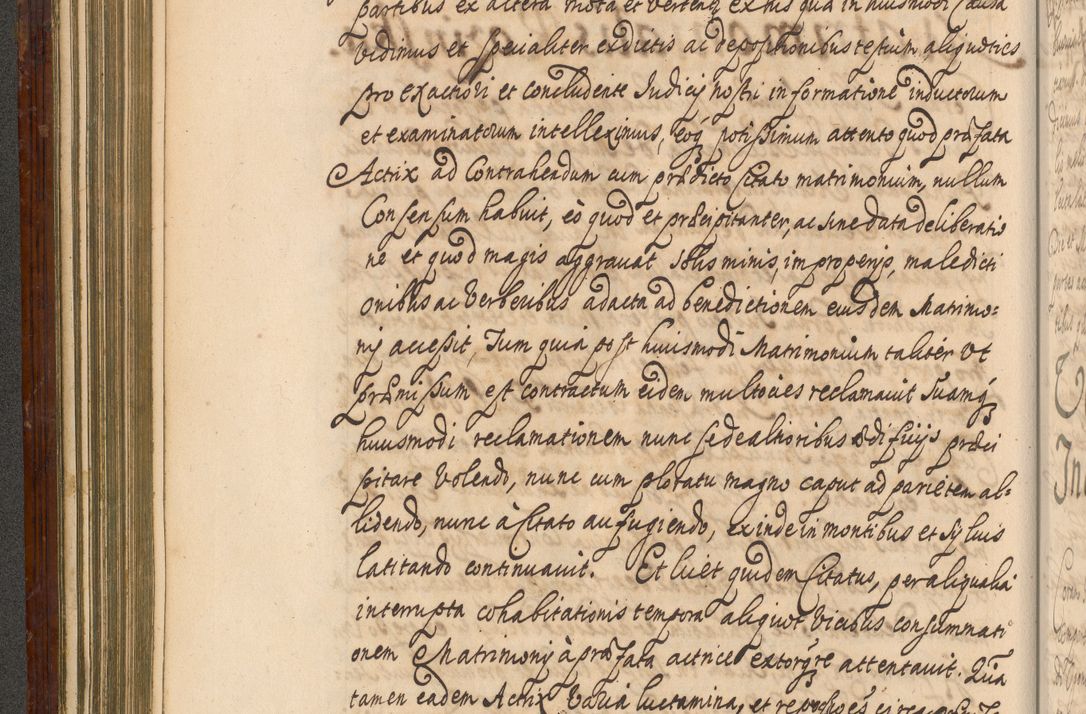 partibus ex altera mota et verten ex his quia in huiusmodi Causa
vidimus et specialiter ex dictis ac depositionibus testium aliquoties
pro exactiori et concludente Judicij nostri informatione inductorum
et examinatorum intelleximus, eoq potissimum attento quod præfata
Actrix ad Contrahendum cum prædicto Citato matrimonium, nullum
Consensum habuit, eò quod et præcipitanter, ac sine data deliberatio
ne et quod magis aggravat solis minis, improperijs, maledicti
onibus ac verberibus adacta ad benedictionem eiusdem Matrimo=
nij accessit, Tum quia post huiusmodi Matrimonium taliter ut
præmissum est contractum eidem multocies reclamavit suamq
huiusmodi reclamationem nunc se de altioribus ædificijs præci
pitare volendo, nunc cum ploratu magno caput ad parietem al=
lidendo, nunc à Citato aufugiendo, exinde in montibus et sylvis
latitando continuavit. Et licet quidem Citatus, per aliqualia
interrupta cohabitationis tempora aliquot vicibus consummati
onem Matrimonij à præfata actrice extorqre attentavit. Quia
tamen eadem Actrix varia luctamina, et